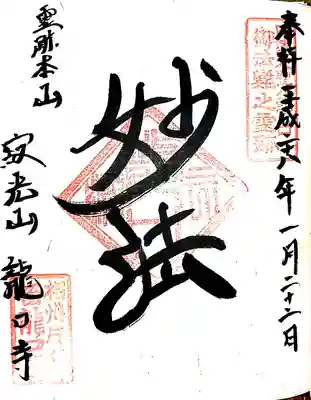 奉拝 平成廿八年一月二十二日
御法難之霊跡
妙法
霊跡本山
寂光山 龍口寺